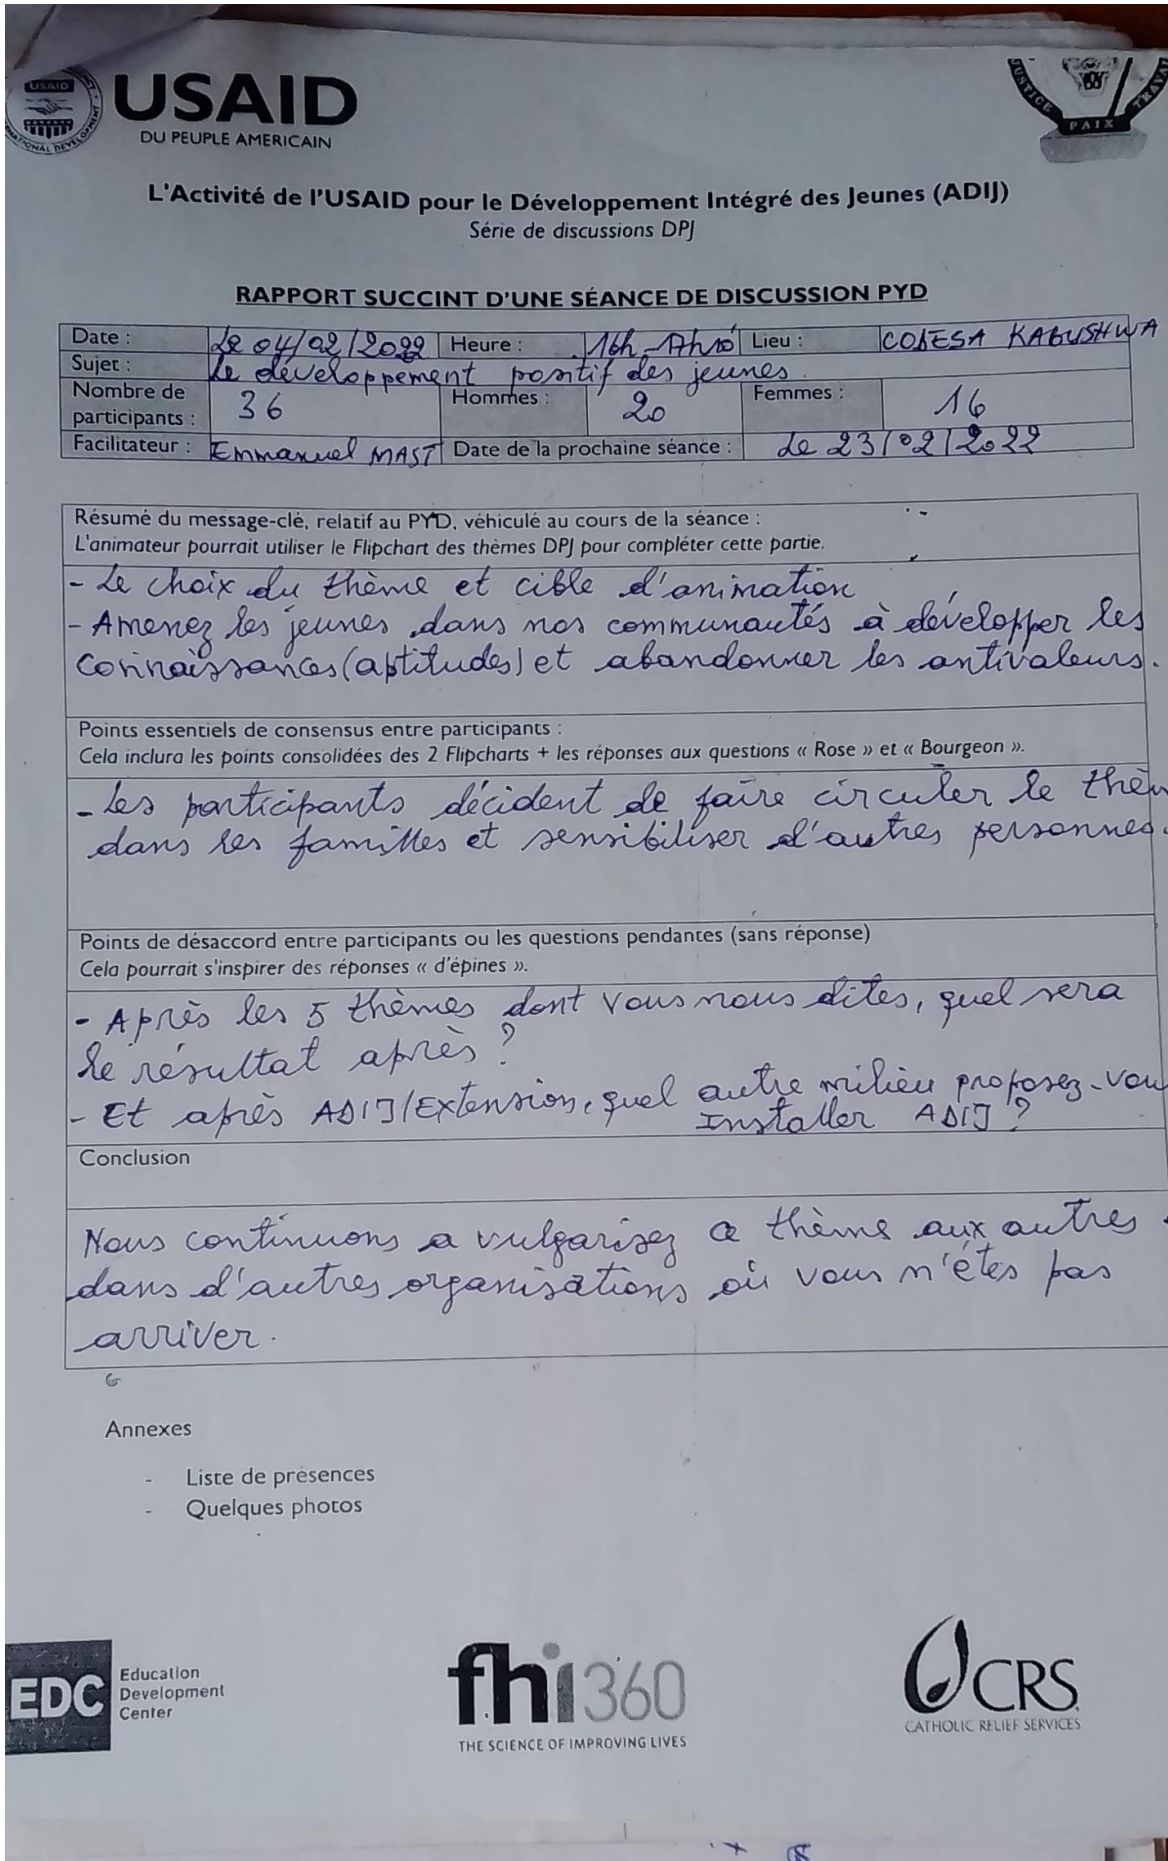 USAID
USAID
DU PEUPLE AMERICAIN
JUSTICE PAIX TRAVAIL
L'Activité de l'USAID pour le Développement Intégré des Jeunes (ADIJ)
Série de discussions DPJ
RAPPORT SUCCINT D'UNE SÉANCE DE DISCUSSION PYD
Date : Le 04/02/2022 Heure : 16h-17h10 Lieu : CODESA KABUSHWA
Sujet : Le développement positif des jeunes.
Nombre de participants : 36 Hommes : 20 Femmes : 16
Facilitateur : Emmanuel MAST Date de la prochaine séance : Le 23/02/2022
Résumé du message-clé, relatif au PYD, véhiculé au cours de la séance :
L'animateur pourrait utiliser le Flipchart des thèmes DPJ pour compléter cette partie.
- Le choix du thème et cible d'animation
- Amenez les jeunes dans nos communautés à développer les
connaissances (aptitudes) et abandonner les antivaleurs.
Points essentiels de consensus entre participants :
Cela inclura les points consolidées des 2 Flipcharts + les réponses aux questions « Rose » et « Bourgeon ».
- Les participants décident de faire circuler le thèm
dans les familles et sensibiliser d'autres personnes.
Points de désaccord entre participants ou les questions pendantes (sans réponse)
Cela pourrait s'inspirer des réponses « d'épines ».
- Après les 5 thèmes dont vous nous dites, quel sera
le résultat après ?
- Et après ADIJ/Extension, quel autre milieu proposez-vou
Installer ADIJ ?
Conclusion
Nous continuons a vulgarisez ce thème aux autres
dans d'autres organisations où vous n'êtes pas
arriver.
Annexes
- Liste de présences
- Quelques photos
EDC Education
Development
Center
fhi360
THE SCIENCE OF IMPROVING LIVES
CRS
CATHOLIC RELIEF SERVICES